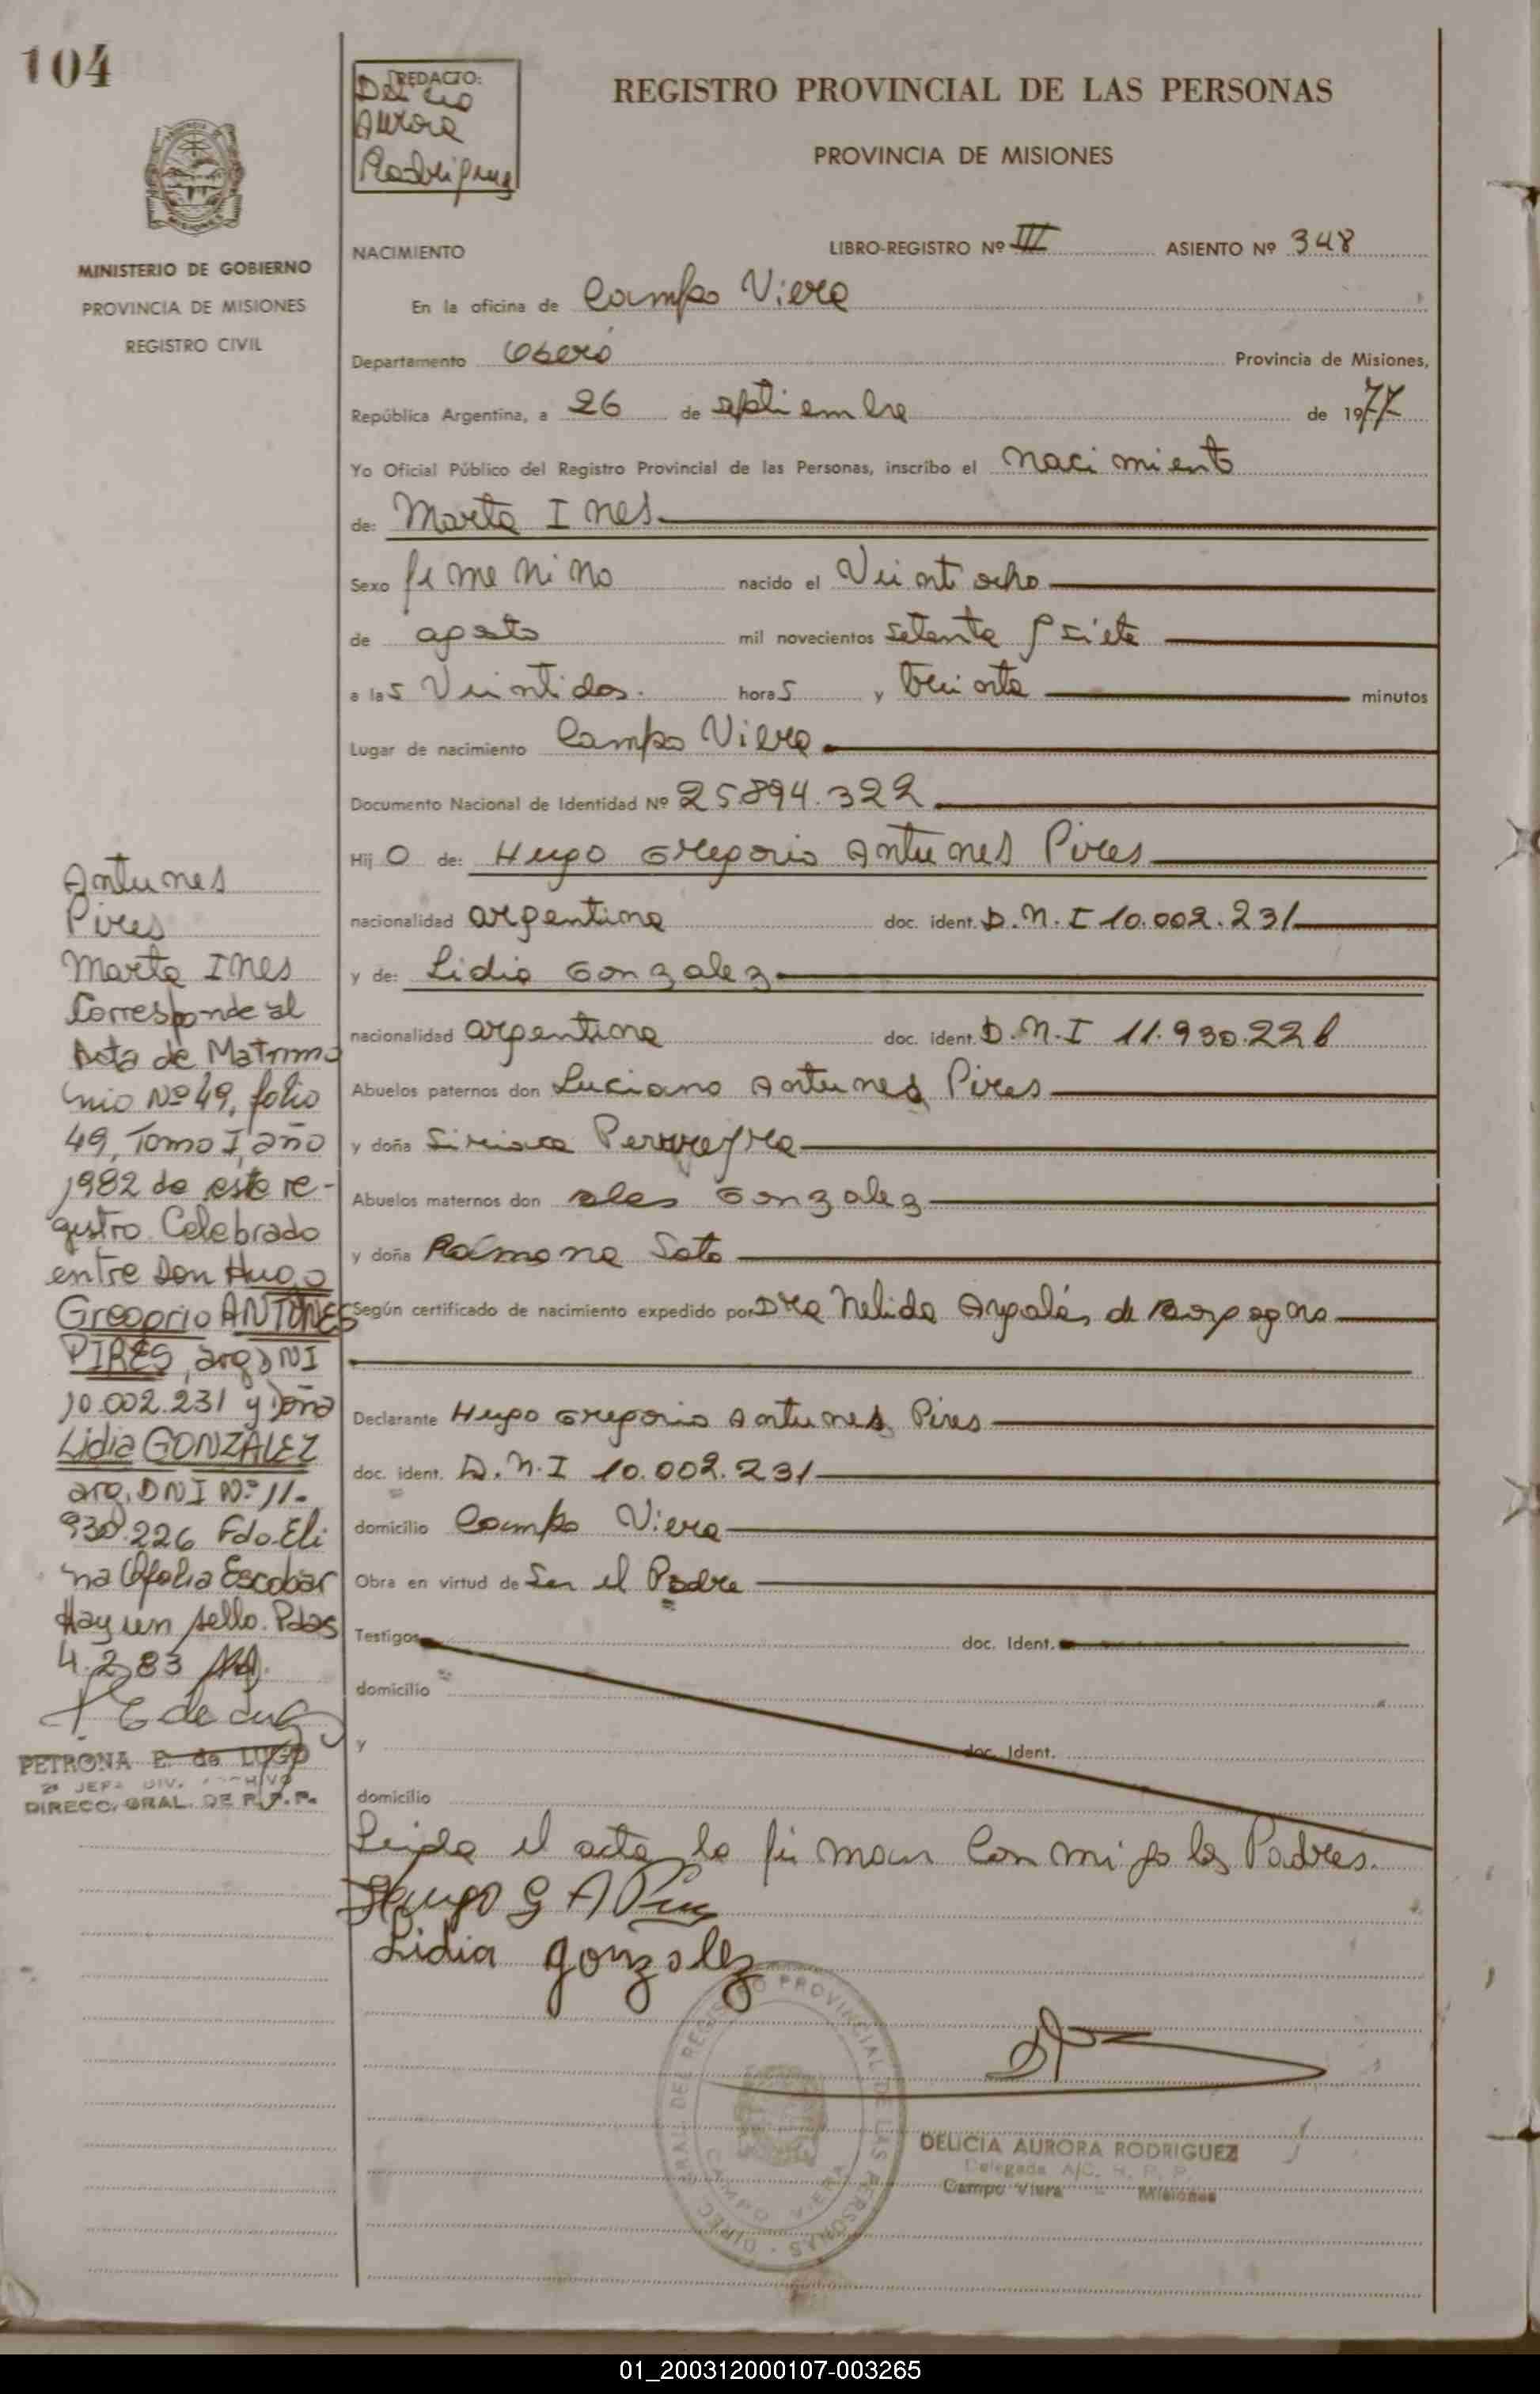 104
REDACTO:
Delicia
Aurora
Rodriguez
REGISTRO PROVINCIAL DE LAS PERSONAS
PROVINCIA DE MISIONES
MINISTERIO DE GOBIERNO
PROVINCIA DE MISIONES
REGISTRO CIVIL
NACIMIENTO LIBRO-REGISTRO Nº III ASIENTO Nº 348
En la oficina de Campo Viera
Departamento Oberá Provincia de Misiones,
República Argentina, a 26 de septiembre de 1977
Yo Oficial Público del Registro Provincial de las Personas, inscribo el nacimiento
de: Marta Ines
Sexo femenino nacido el Veintiocho
de agosto mil novecientos setenta y siete
a las Veintidos. horas y treinta minutos
Lugar de nacimiento Campo Viera
Documento Nacional de Identidad Nº 25.894.322
Hijo de: Hugo Gregorio Antunes Pires
nacionalidad argentina doc. ident. D.N.I 10.002.231
y de: Lidia Gonzalez
nacionalidad argentina doc. ident. D.N.I 11.930.226
Abuelos paternos don Luciano Antunes Pires
y doña Siriaca
Abuelos maternos don Gonzalez
y doña Ramona Soto
Según certificado de nacimiento expedido por Dra Nelida de
Declarante Hugo Gregorio Antunes Pires
doc. ident. D.N.I 10.002.231
domicilio Campo Viera
Obra en virtud de Ser el Padre
Testigos doc. Ident.
domicilio
y doc. Ident.
domicilio
Leida el acta la firman conmigo los Padres.
Hugo G A Pires
Lidia gonzalez
Antunes
Pires
Marta Ines
Corresponde al
Acta de Matrimo
nio Nº 49, folio
49, Tomo I, año
1982 de este re-
gistro Celebrado
entre Don Hugo
Gregorio ANTUNES
PIRES, arg, DNI
10.002.231 y Doña
Lidia GONZÁLEZ
arg, DNI Nº 11.
930.226 Fdo. Eli
na Ofelia Escobar
Hay un sello. Pdas
4.2.83
E de Lugo
PETRONA E. de LUGO
2º JEFA DIV. ARCHIVO
DIRECC. GRAL. DE R.P.P.
DIREC. GRAL. DEL REGISTRO PROVINCIAL DE LAS PERSONAS
CAMPO VIERA
DELICIA AURORA RODRIGUEZ
Delegada A/C. R. P. P.
Campo Viera - Misiones
01_200312000107-003265